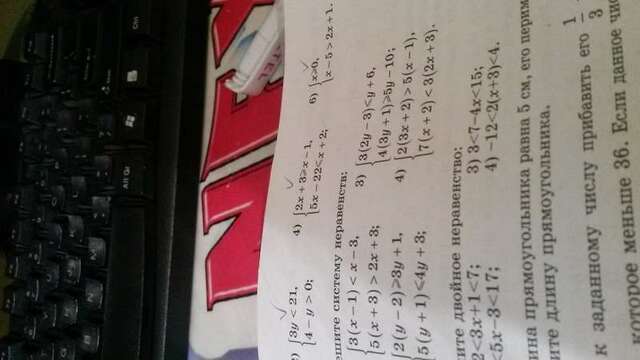 Alt Gr
Ctrl
NEX
2) {3y < 21,
4 − y > 0;
4) {2x + 3 ⩾ x − 1,
5x − 22 ⩽ x + 2;
6) {x ⩾ 0,
x − 5 > 2x + 1.
ешите систему неравенств:
{3(x − 1) < x − 3,
5(x + 3) > 2x + 3;
3) {3(2y − 3) ⩽ y + 6,
4(3y + 1) ⩾ 5y − 10;
{2(y − 2) ⩾ 3y + 1,
5(y + 1) ⩽ 4y + 3;
4) {2(3x + 2) > 5(x − 1),
7(x + 2) < 3(2x + 3).
ите двойное неравенство:
2<3x+1<7;
3) 3<7−4x<15;
<5x−3<17;
4) −12<2(x+3)<4.
ина прямоугольника равна 5 см, его перим
ите длину прямоугольника.
к заданному числу прибавить его 1/3
которое меньше 36. Если данное чис